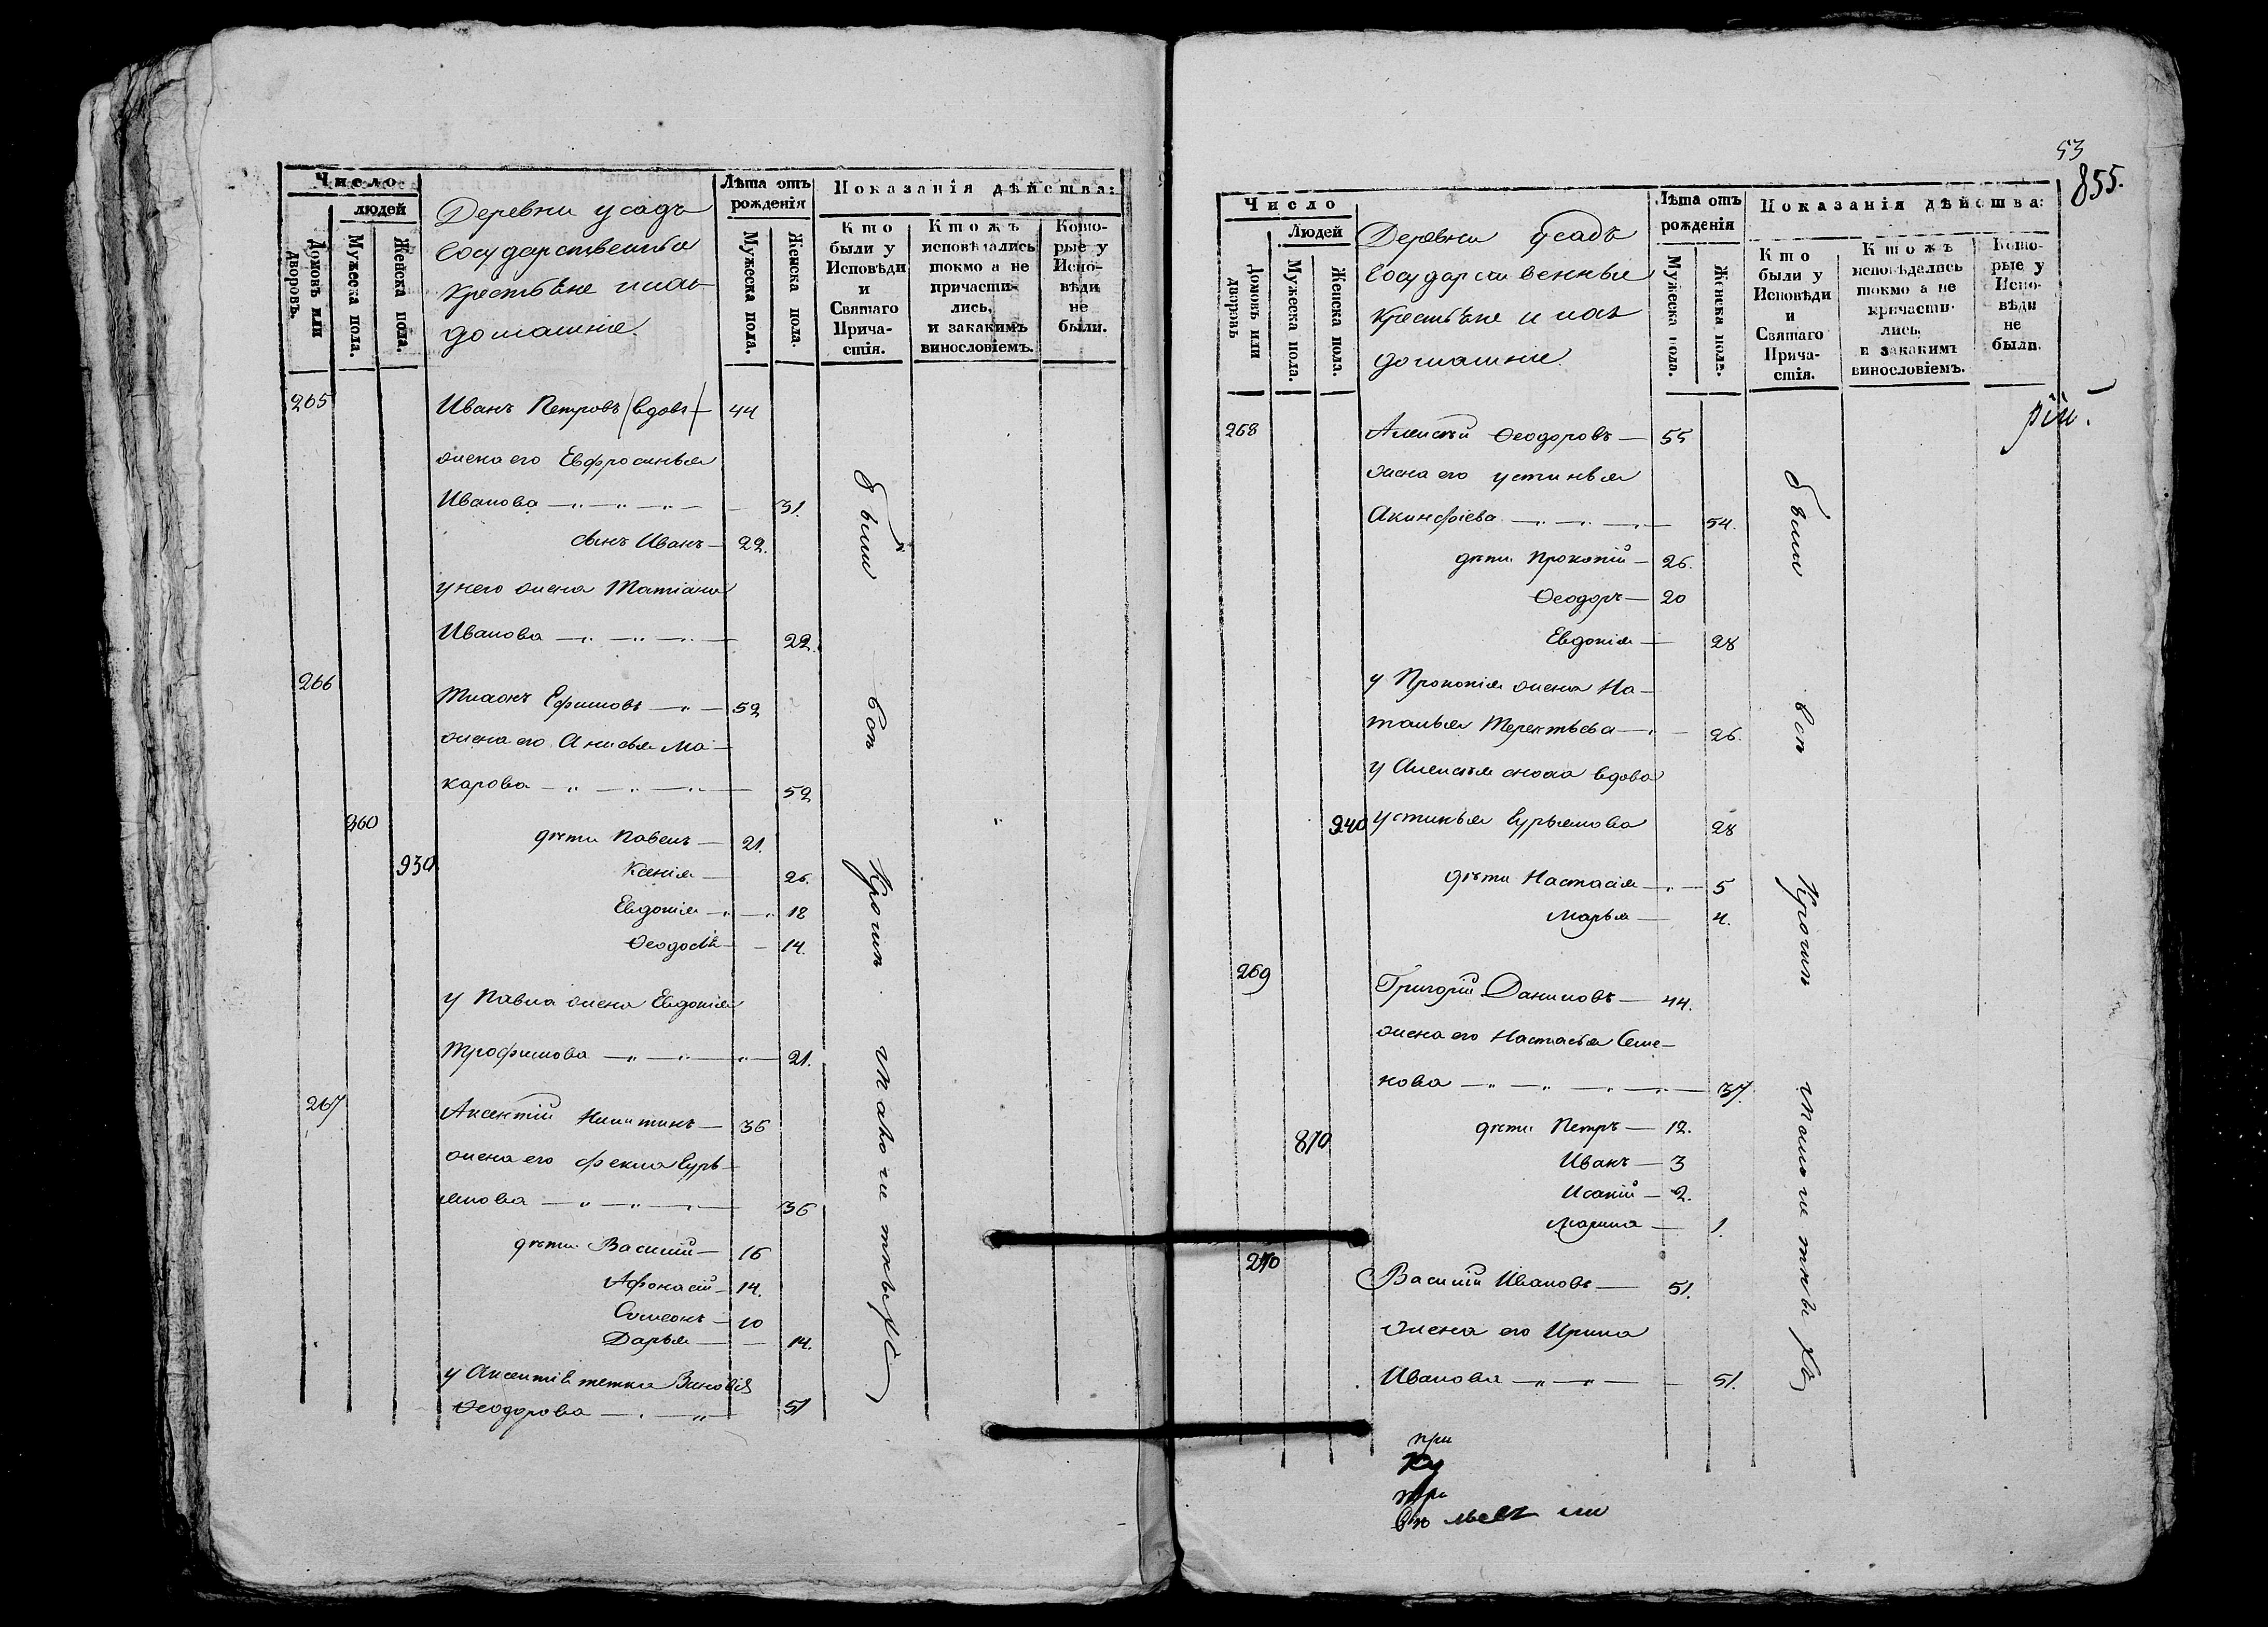 Число
людей
Домовъ или дворовъ.
Мужеска пола.
Женска пола.
Деревни усадъ
Государственныя
крестьяне и ихъ
домашніе.
Лѣта отъ рожденія
Мужеска пола.
Женска пола.
Показанія дѣйства:
Кто были у Исповѣди и Святаго Причастія.
Кто жъ исповѣдались токмо а не причастились, и закакимъ винословіемъ.
Которые у Исповѣди не были.
265 Иванъ Петровъ /вдовъ/ 44
жена его Евфросинья
Иванова 31.
сынъ Иванъ 22.
у него жена Татіана
Иванова 22.
266 Ефимовъ 52
жена его Анисья Ма-
карова 52
260 дѣти Павелъ 21.
930 Ксенія 26.
Евдокія 18
Ѳеодосія 14.
у Павла жена Евдокія
Трофимова 21.
267 Аксентій Никитинъ 36
жена его Фекла Гурь-
янова 36
дѣти Василій 16
Афонасій 14.
Симеонъ 10
Дарья 14.
у Аксентія тетка Зиновія
Ѳеодорова 51
были
вси
Кромѣ
53
855.
Число
Людей
Домовъ или дворовъ
Мужеска пола.
Женска пола.
Деревни усадъ
Государственныя
крестьяне и ихъ
домашніе.
Лѣта отъ рожденія
Мужеска пола.
Женска пола.
Показанія дѣйства:
Кто были у Исповѣди и Святаго Причастія.
Кто жъ исповѣдались токмо а не причастились, и закакимъ винословіемъ.
Которые у Исповѣди не были.
268 Алексѣй Ѳеодоровъ 55
жена его Устинья
Акинфіева 54.
дѣти Прокопій 26.
Ѳеодоръ 20
Евдокія 28
у Прокопія жена На-
талья Терентьева 26.
у Алексѣя сноха вдова
940 Устинья Гурьянова 28
дѣти Настасія 5
Марья 4.
269 Григорій Даниловъ 44.
жена его Настасья Семе-
нова 37.
870 дѣти Петръ 12.
Иванъ 3
Исакій 2.
Марина 1.
270 Василій Ивановъ 51.
жена его Ирина
Иванова 51.
были
вси
Кромѣ
при